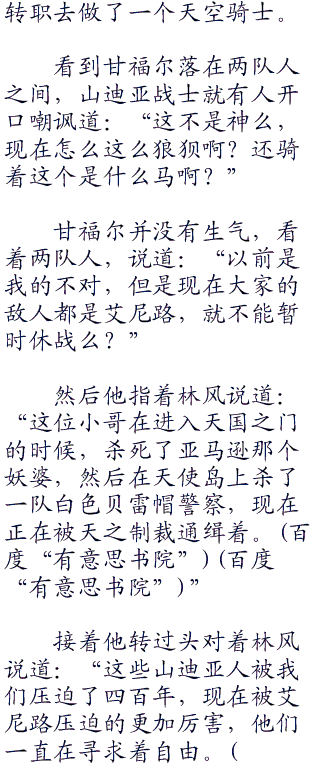 转职去做了一个天空骑士。
看到甘福尔落在两队人
之间，山迪亚战士就有人开
口嘲讽道：“这不是神么，
现在怎么这么狼狈啊？还骑
着这个是什么马啊？”
甘福尔并没有生气，看
着两队人，说道：“以前是
我的不对，但是现在大家的
敌人都是艾尼路，就不能暂
时休战么？”
然后他指着林风说道：
“这位小哥在进入天国之门
的时候，杀死了亚马逊那个
妖婆，然后在天使岛上杀了
一队白色贝雷帽警察，现在
正在被天之制裁通缉着。(百
度“有意思书院”)(百度
“有意思书院”)”
接着他转过头对着林风
说道：“这些山迪亚人被我
们压迫了四百年，现在被艾
尼路压迫的更加厉害，他们
一直在寻求着自由。(